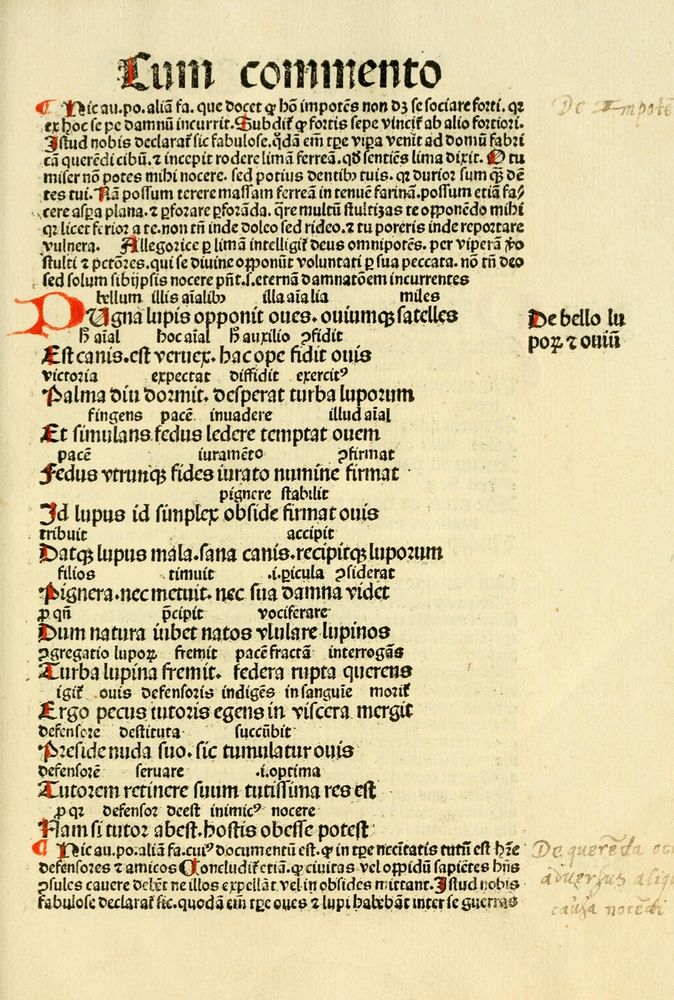 Cum commento
Hic au. po. aliā fa. que docet ꝙ hō impotēs non dꝫ se sociare forti. qꝛ
ex hoc sepe damnū incurrit. Subdit̄ ꝙ fortis sepe vincit̄ ab alio fortiori.
Istud nobis declarat̄ sic fabulose. qd̄ā em̄ tꝑe viꝑa venit ad domū fabri
cā querēdi cibū. ⁊ incepit rodere limā ferreā. qd̄ sentiēs lima dixit. O tu
miser nōn potes mihi nocere. sed potius dentibꝰ tuis. qꝛ durior sum qꝫ dē
tes tui. Nā possum terere massam ferreā in tenuē farinā. possum etiā fa⸗
cere aspa plana. ⁊ ꝑforare ꝑforāda. q̄re multū stultizas te opponēdo mihi
qꝛ licet ferior a te. non tn̄ inde doleo sed rideo. ⁊ tu poteris inde reportare
vulnera. Allegorice ꝑ limā intelligit̄ deus omnipotēs. per viperā
stulti ⁊ pctōres. qui se diuine opponūt voluntati ꝑ sua peccata. nō tn̄ deo
sed solum sibijpsis nocere pn̄t. s. eternā damnatōem incurrentes
bellum illis aīalibꝰ illa aīalia miles
PUgna lupis opponit oues. ouiumqꝫ satelles
De bello lu
poꝝ ⁊ ouiū
h̄ aīal hoc aīal h̄ auxilio ꝯfidit
Est canis. est veruex. hac ope fidit ouis
victoria expectat diffidit exercitꝰ
Palma diu dormit. desperat turba luporum
fingens pacē invadere illud aīal
Et simulans fedus ledere temptat ouem
pacē iuramēto ꝯfirmat
Fedus vtrunqꝫ fides iurato numine firmat
pignere stabilit
Id lupus id simplex obside firmat ouis
tribuit accipit
Datqꝫ lupus mala. sana canis. recipitqꝫ luporum
filios timuit .i. ꝑicula ꝯsiderat
Pignera. nec metuit. nec sua damna videt
ꝓ qn̄ p̄cipit vociferare
Dum natura iubet natos vlulare lupinos
ꝯgregatio lupoꝝ fremit pacē fractā interrogās
Turba lupina fremit. federa rupta querens
igit̄ ouis defensoris indigēs in sanguīe morit̄
Ergo pecus tutoris egens in viscera mergit
defensore destituta succūbit
Preside nuda suo. sic tumulatur ouis
defensorē seruare .i. optima
Tutorem retinere suum tutissima res est
ꝓ qꝛ defensor deest inimicꝰ nocere
Nam si tutor abest. hostis obesse potest
Hic au. po. aliā fa. cuiꝰ documētū est. ꝙ in tꝑe necītatis tutū est hr̄e
defensores ⁊ amicos Concludit̄ etiā. ꝙ ciuitas vel oppidū sapiētes hn̄s
ꝯsules cauere debēt ne illos expellāt. vel in obsides mittant. Istud nobis
fabulose declarat̄ sic. quodā em̄ tꝑe oues ⁊ lupi habebāt inter se guerras
De querēda
aduersus aliq
causa nocēdi